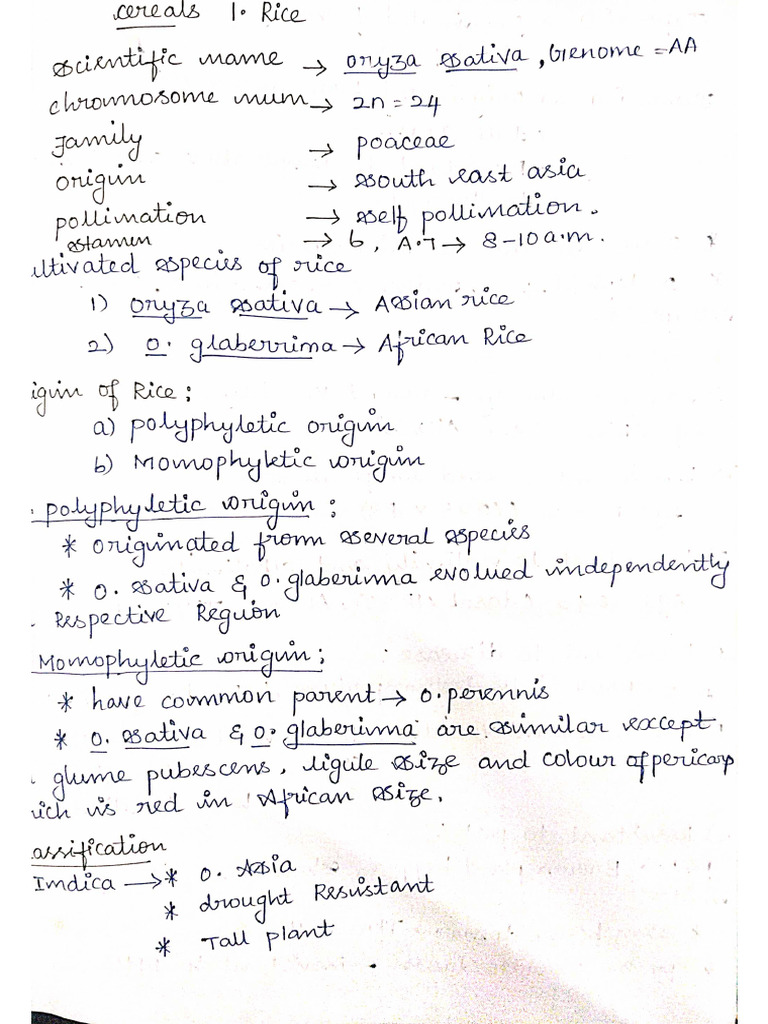 cereals 1. Rice
Scientific name → oryza sativa, Genome = AA
chromosome num → 2n = 24
Family → poaceae
origin → South east asia
pollination → Self pollination.
Stamen → 6, A.T → 8-10 a.m.
ultivated species of rice
1) oryza sativa → Asian rice
2) O. glaberrima → African Rice
igin of Rice:
a) polyphyletic origin
b) Monophyletic origin
polyphyletic origin:
* originated from several species
* O. sativa & O. glaberima evolued independently
Respective Region
Monophyletic origin:
* have common parent → O. perennis
* O. sativa & O. glaberima are similar except
glume pubescens, ligule size and colour of pericarp
ich is red in African size.
assification
Indica → * O. Asia
* drought Resistant
* Tall plant